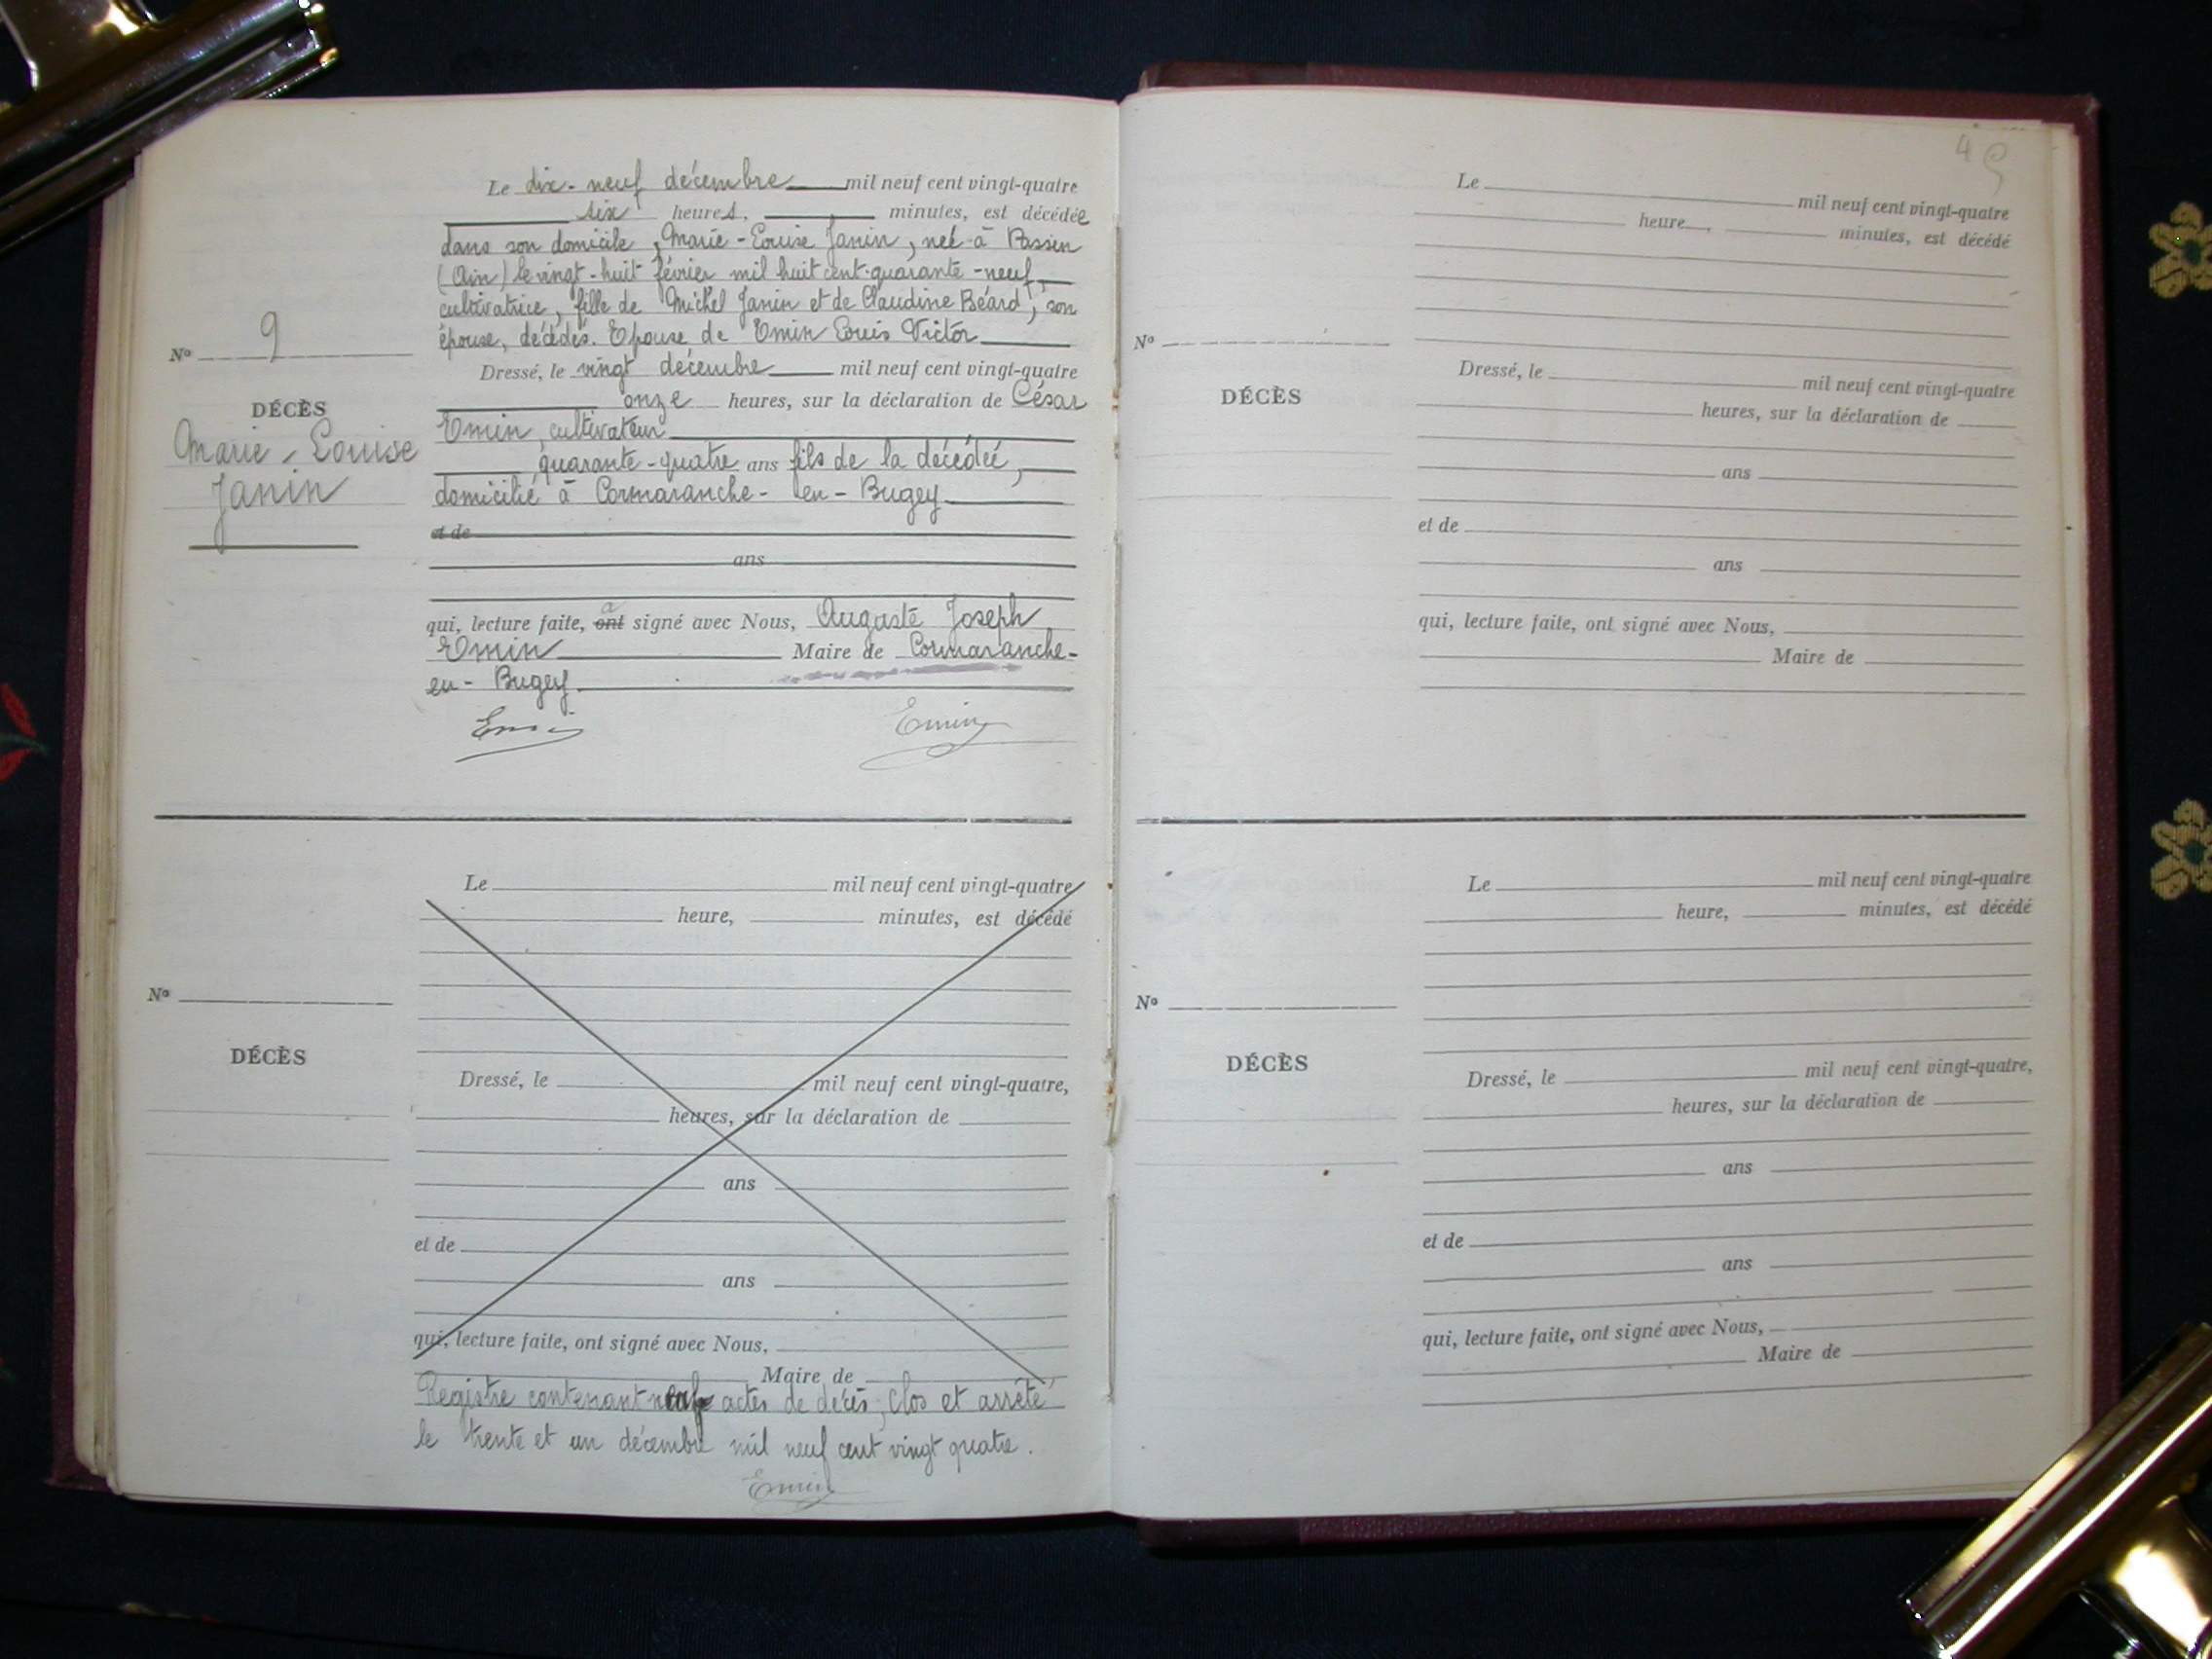 Le dix-neuf décembre mil neuf cent vingt-quatre
six heures, minutes, est décédée
dans son domicile, Marie-Louise Janin, neé à Passin
(Ain) le vingt-huit février mil huit cent-quarante-neuf
cultivatrice, fille de Michel Janin et de Claudine Béard, son
épouse, décédés. Epouse de Emin Louis Victor
No 9
DÉCÈS
Marie-Louise
Janin
Dressé, le vingt décembre mil neuf cent vingt-quatre
onze heures, sur la déclaration de César
Emin, cultivateur
quarante-quatre ans fils de la décédeé,
domicilié à Cormaranche-en-Bugey
et de
ans
a
qui, lecture faite, ont signé avec Nous, Auguste Joseph
Emin Maire de Cormaranche-
en-Bugey
Emin
Emin
Le mil neuf cent vingt-quatre
heure, minutes, est décédé
No
DÉCÈS
Dressé, le mil neuf cent vingt-quatre,
heures, sur la déclaration de
ans
et de
ans
qui, lecture faite, ont signé avec Nous,
Maire de
Registre contenant neuf actes de décès, clos et arrêté
le trente et un décembre mil neuf cent vingt quatre.
Emin
Le mil neuf cent vingt-quatre
heure, minutes, est décédé
No
DÉCÈS
Dressé, le mil neuf cent vingt-quatre
heures, sur la déclaration de
ans
et de
ans
qui, lecture faite, ont signé avec Nous,
Maire de
Le mil neuf cent vingt-quatre
heure, minutes, est décédé
No
DÉCÈS
Dressé, le mil neuf cent vingt-quatre,
heures, sur la déclaration de
ans
et de
ans
qui, lecture faite, ont signé avec Nous,
Maire de